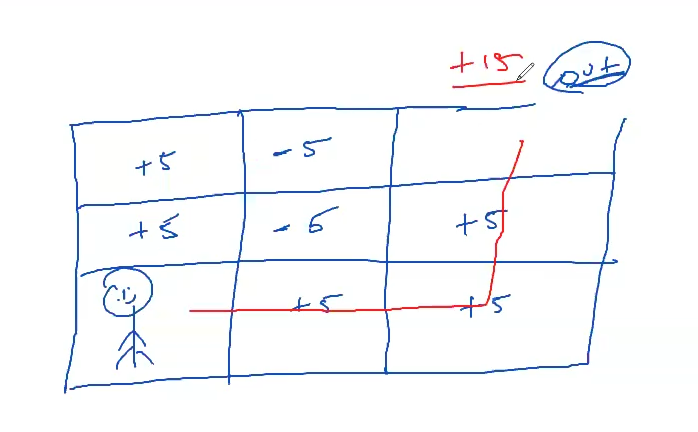 +15 out
+5 -5
+5 -5 +5
+5 +5